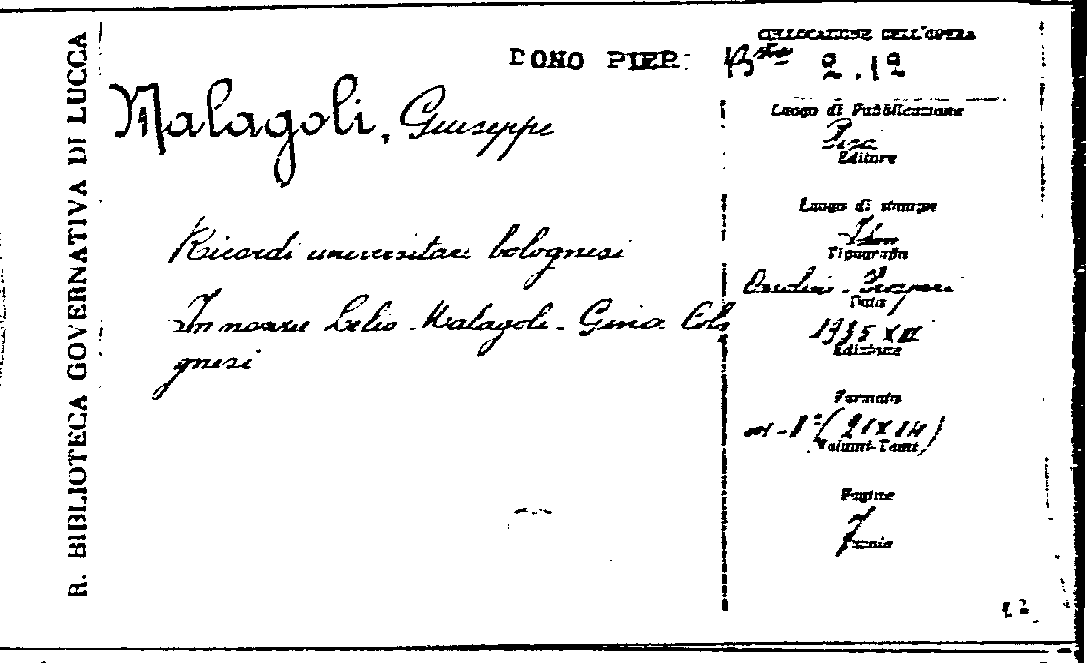 R. BIBLIOTECA GOVERNATIVA DI LUCCA
DONO PIER.
COLLOCAZIONE DELL'OPERA
Bsta 2.12
Malagoli, Giuseppe
Ricordi universitari bolognesi
In nozze Lelio Malagoli - Gina Colo
gnesi
Luogo di Pubblicazione
Pisa
Editore
Luogo di stampa
Idem
Tipografia
Orsolini - Prosperi
Data
1935 XIII
Edizione
Formato
in-8° (21x14)
Volumi-Tomi
Pagine
7
Prezzo
12